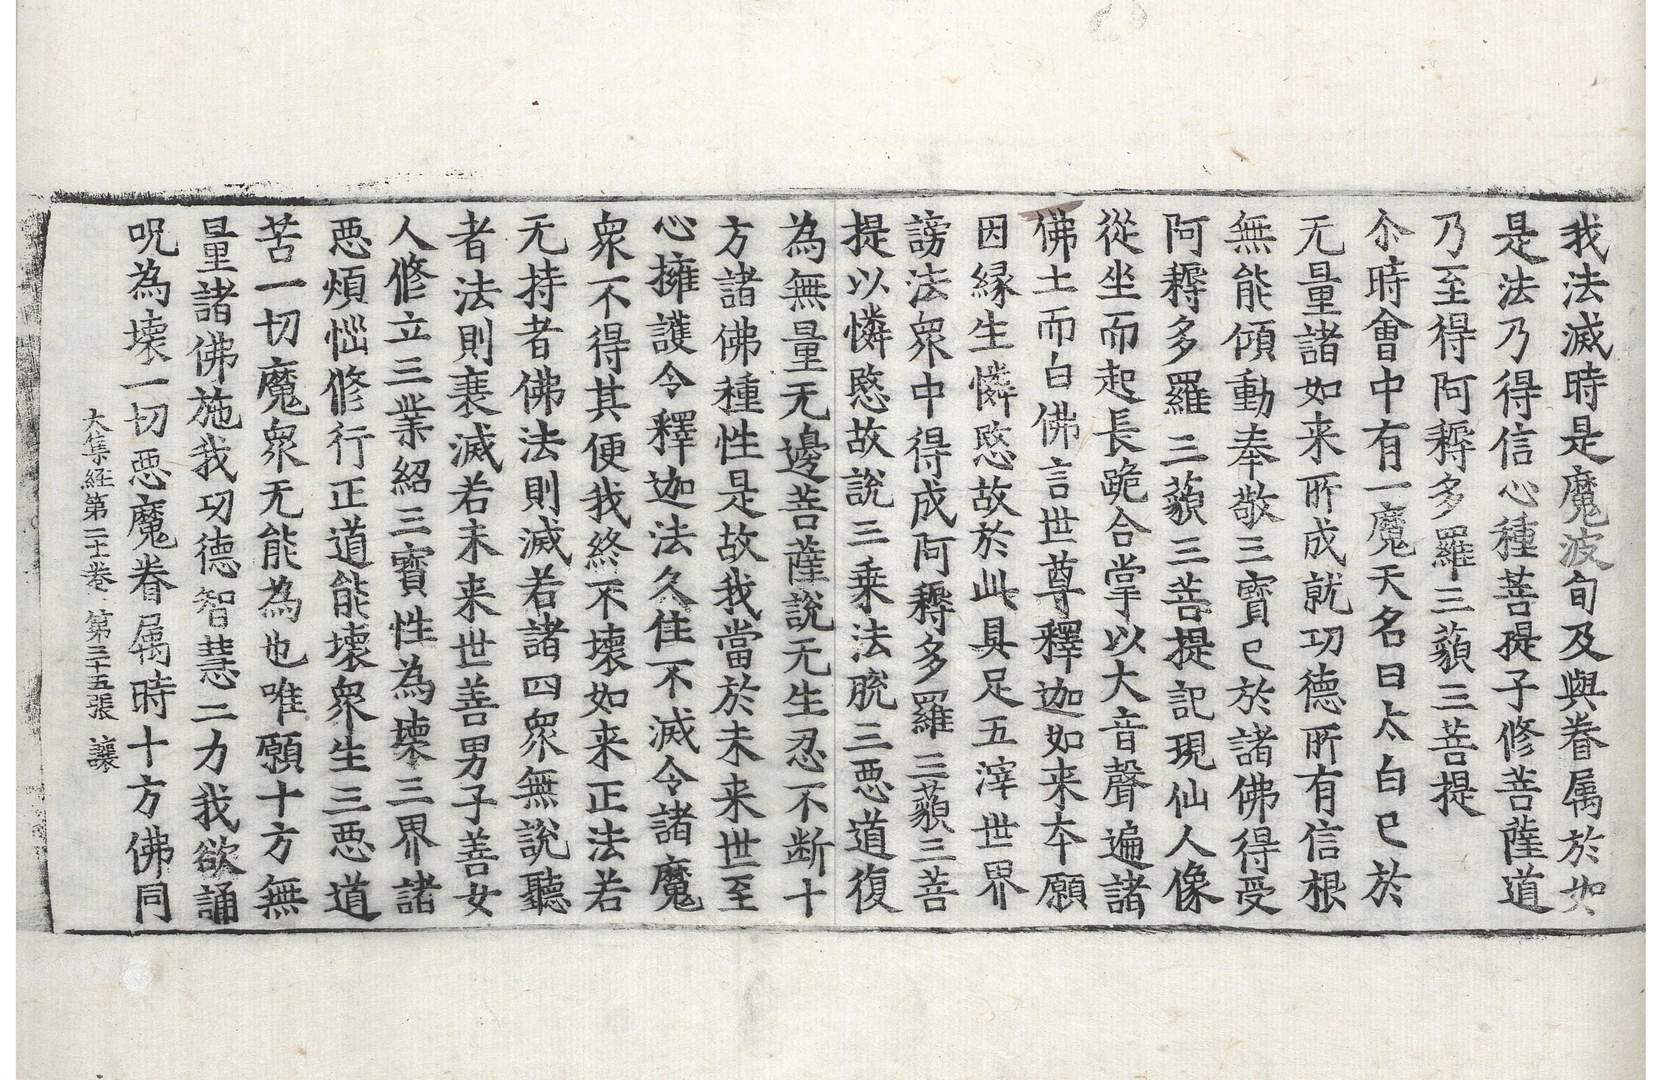 我法滅時是魔波旬及與眷属於如
是法乃得信心種菩提子修菩薩道
乃至得阿耨多羅三藐三菩提
尒時會中有一魔天名曰太白已於
无量諸如来所成就功德所有信根
無能傾動奉敬三寳已於諸佛得受
阿耨多羅三藐三菩提記現仙人像
從坐而起長跪合掌以大音聲遍諸
佛土而白佛言世尊釋迦如来夲願
因縁生憐愍故於此具足五滓世界
謗法衆中得成阿耨多羅三藐三菩
提以憐愍故說三乗法脫三悪道復
為無量无邊菩薩說无生忍不断十
方諸佛種性是故我當於未来世至
心擁護令釋迦法久住不滅令諸魔
衆不得其便我終不壊如来正法若
无持者佛法則滅若諸四衆無說聽
者法則衰滅若未来世善男子善女
人修立三業紹三寳性為壊三界諸
悪煩惱修行正道能壊衆生三悪道
苦一切魔衆无能為也唯願十方無
量諸佛施我功德智慧二力我欲誦
呪為壊一切悪魔眷属時十方佛同
大集経第二十卷 第三十五張 讓